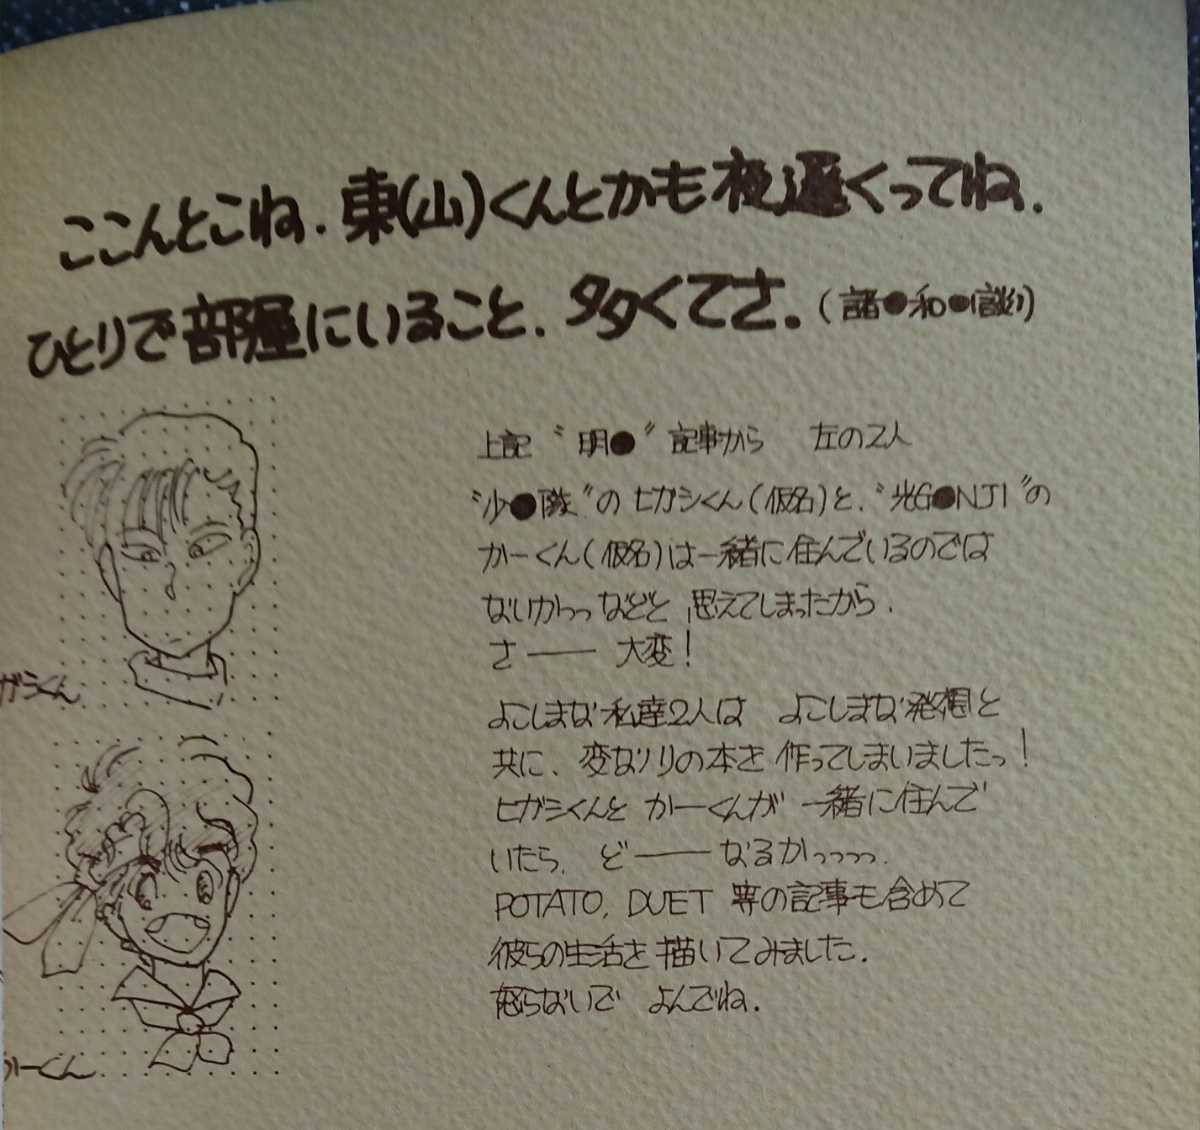 ここんとこね.東(山)くんとかも夜遅くってね.
ひとりで部屋にいること.多くてさ.(諸●和●(談))
上記〝明●〞記事から 左の2人
〝少●隊〞のヒガシくん(仮名)と、〝光G●NJI〞の
かーくん(仮名)は一緒に住んでいるのでは
ないかっっなどと 思えてしまったから.
さ── 大変!
よこしまな私達2人は よこしまな発想と
共に、変なノリの本を作ってしまいましたっ!
ヒガシくんと かーくんが 一緒に住んで
いたら、ど──なるかっっっっ.
POTATO, DUET 等の記事も含めて
彼らの生活を描いてみました.
怒らないで よんでね.
ガシくん
かーくん